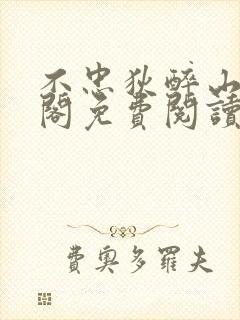 不忠狄醉山
閣免費閱讀
費奧多羅夫